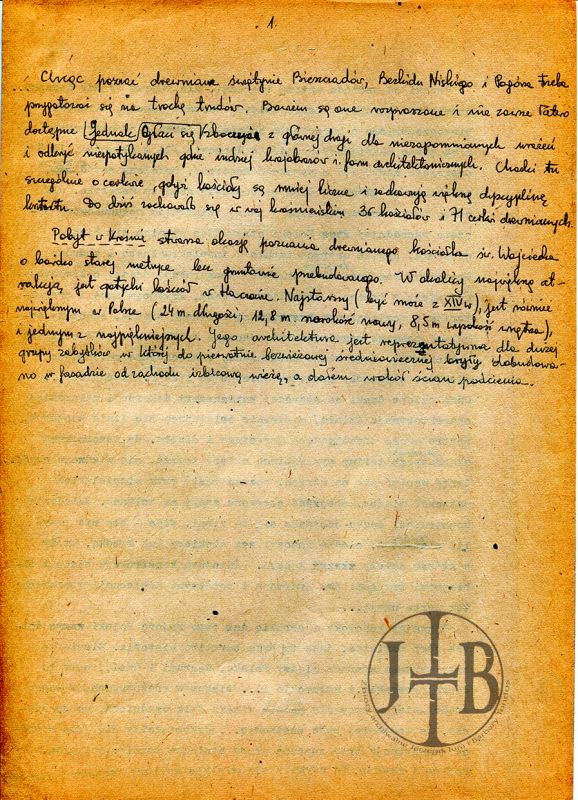 1.
Chcąc poznać drewniane świątynie Bieszczadów, Beskidu Niskiego i Pogórza trzeba
przygotować się na trochę trudów. Bowiem są one rozproszone i nie zawsze łatwo
dostępne Jednak opłaci się zboczenie z głównej drogi dla niezapomnianych wrażeń
i odkryć niespotykanych gdzie indziej krajobrazów i form architektonicznych. Chodzi tu
szczególnie o cerkwie, gdyż kościoły są mniej liczne i zachowują większą dyscyplinę
kształtu. Do dziś zachowało się w woj krośnieńskim 36 kościołów i 71 cerkwi drewnianych.
Pobyt w Krośnie stwarza okazję poznania drewnianego kościółka św. Wojciecha
o bardzo starej metryce lecz gruntownie przebudowanego. W okolicy największą at-
rakcją jest gotycki kościół w Haczowie. Najstarszy (być może z XIV w), jest również
największym w Polsce (24 m długości, 12,8 m. szerokość nawy, 8,5 m wysokość wnętrza),
i jednym z najpiękniejszych. Jego architektura jest reprezentatywna dla dużej
grupy zabytków w której do pierwotnie bezwieżowej średniowiecznej bryły dobudowa-
no w fasadzie od zachodu izbicową wieżę, a dołem wokół ścian podcienia.
JTB